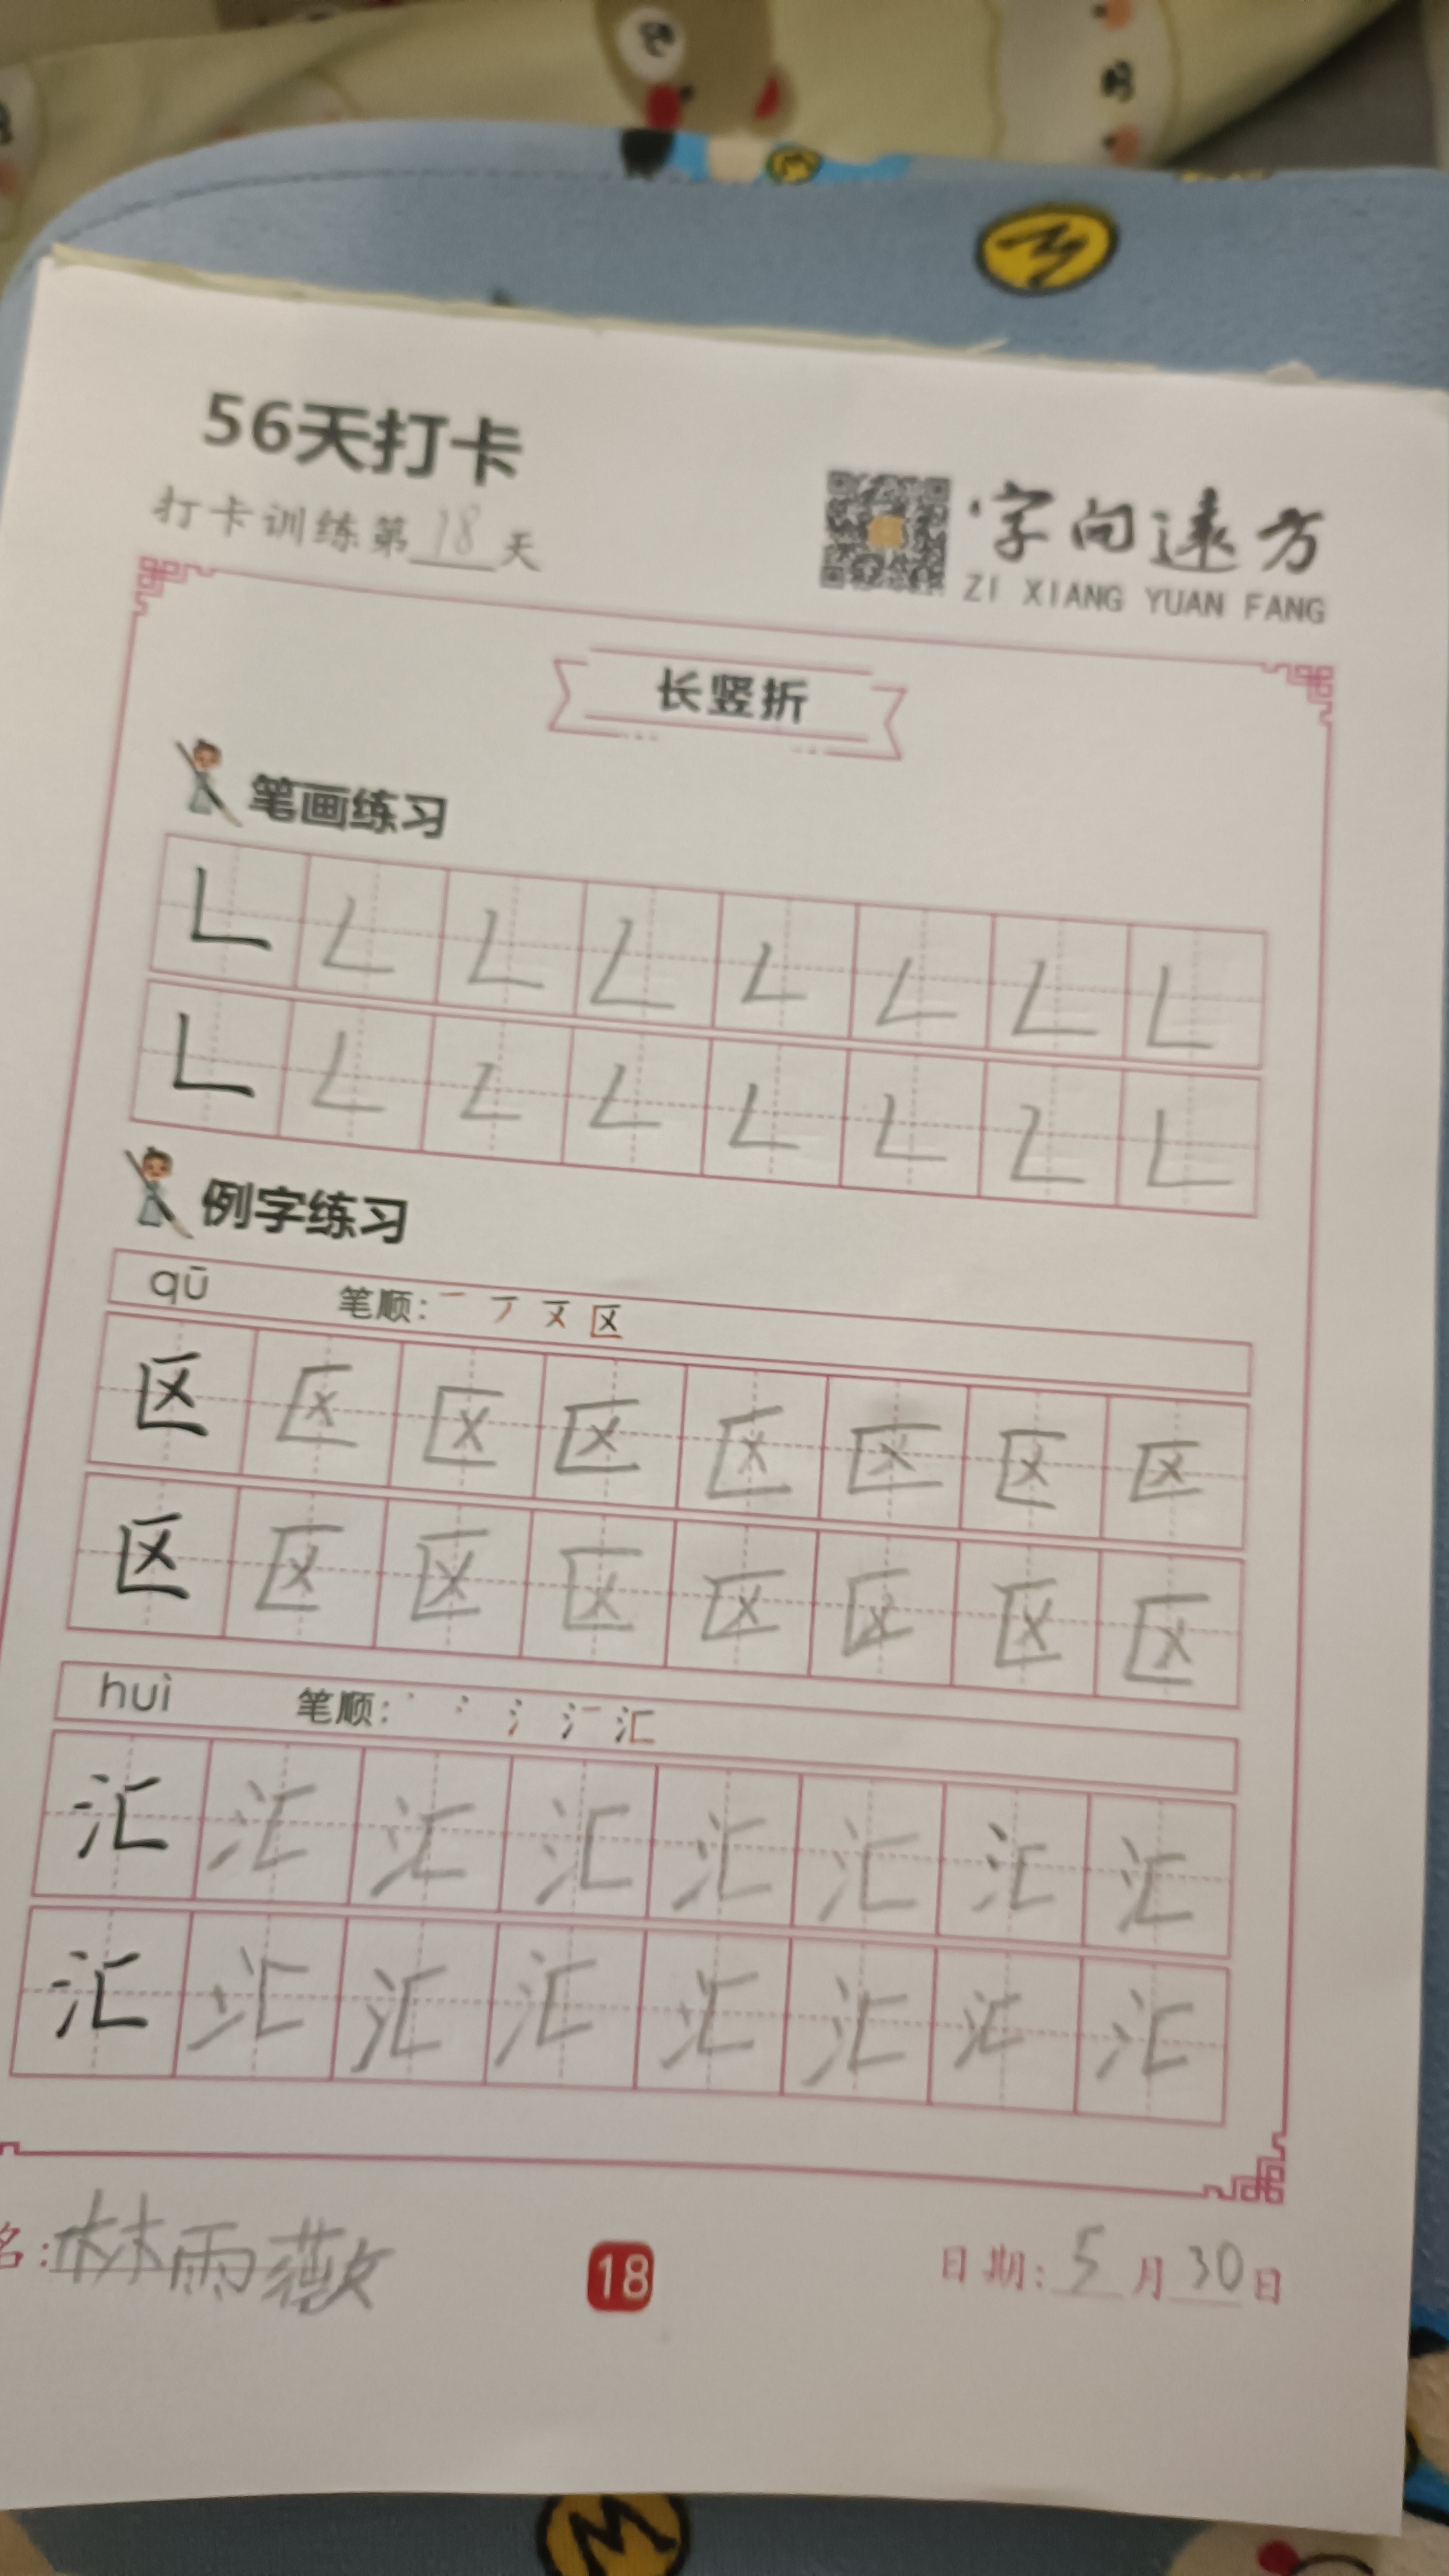 56天打卡
打卡训练第18天
字向远方
ZI XIANG YUAN FANG
长竖折
笔画练习
𠃊 𠃊 𠃊 𠃊 𠃊 𠃊 𠃊 𠃊
𠃊 𠃊 𠃊 𠃊 𠃊 𠃊 𠃊 𠃊
例字练习
qū 笔顺: 一 丆 又 区
区 区 区 区 区 区 区 区
区 区 区 区 区 区 区 区
huì 笔顺: 丶 冫 氵 汇
汇 汇 汇 汇 汇 汇 汇 汇
汇 汇 汇 汇 汇 汇 汇 汇
名:林雨薇 18 日期:5月30日